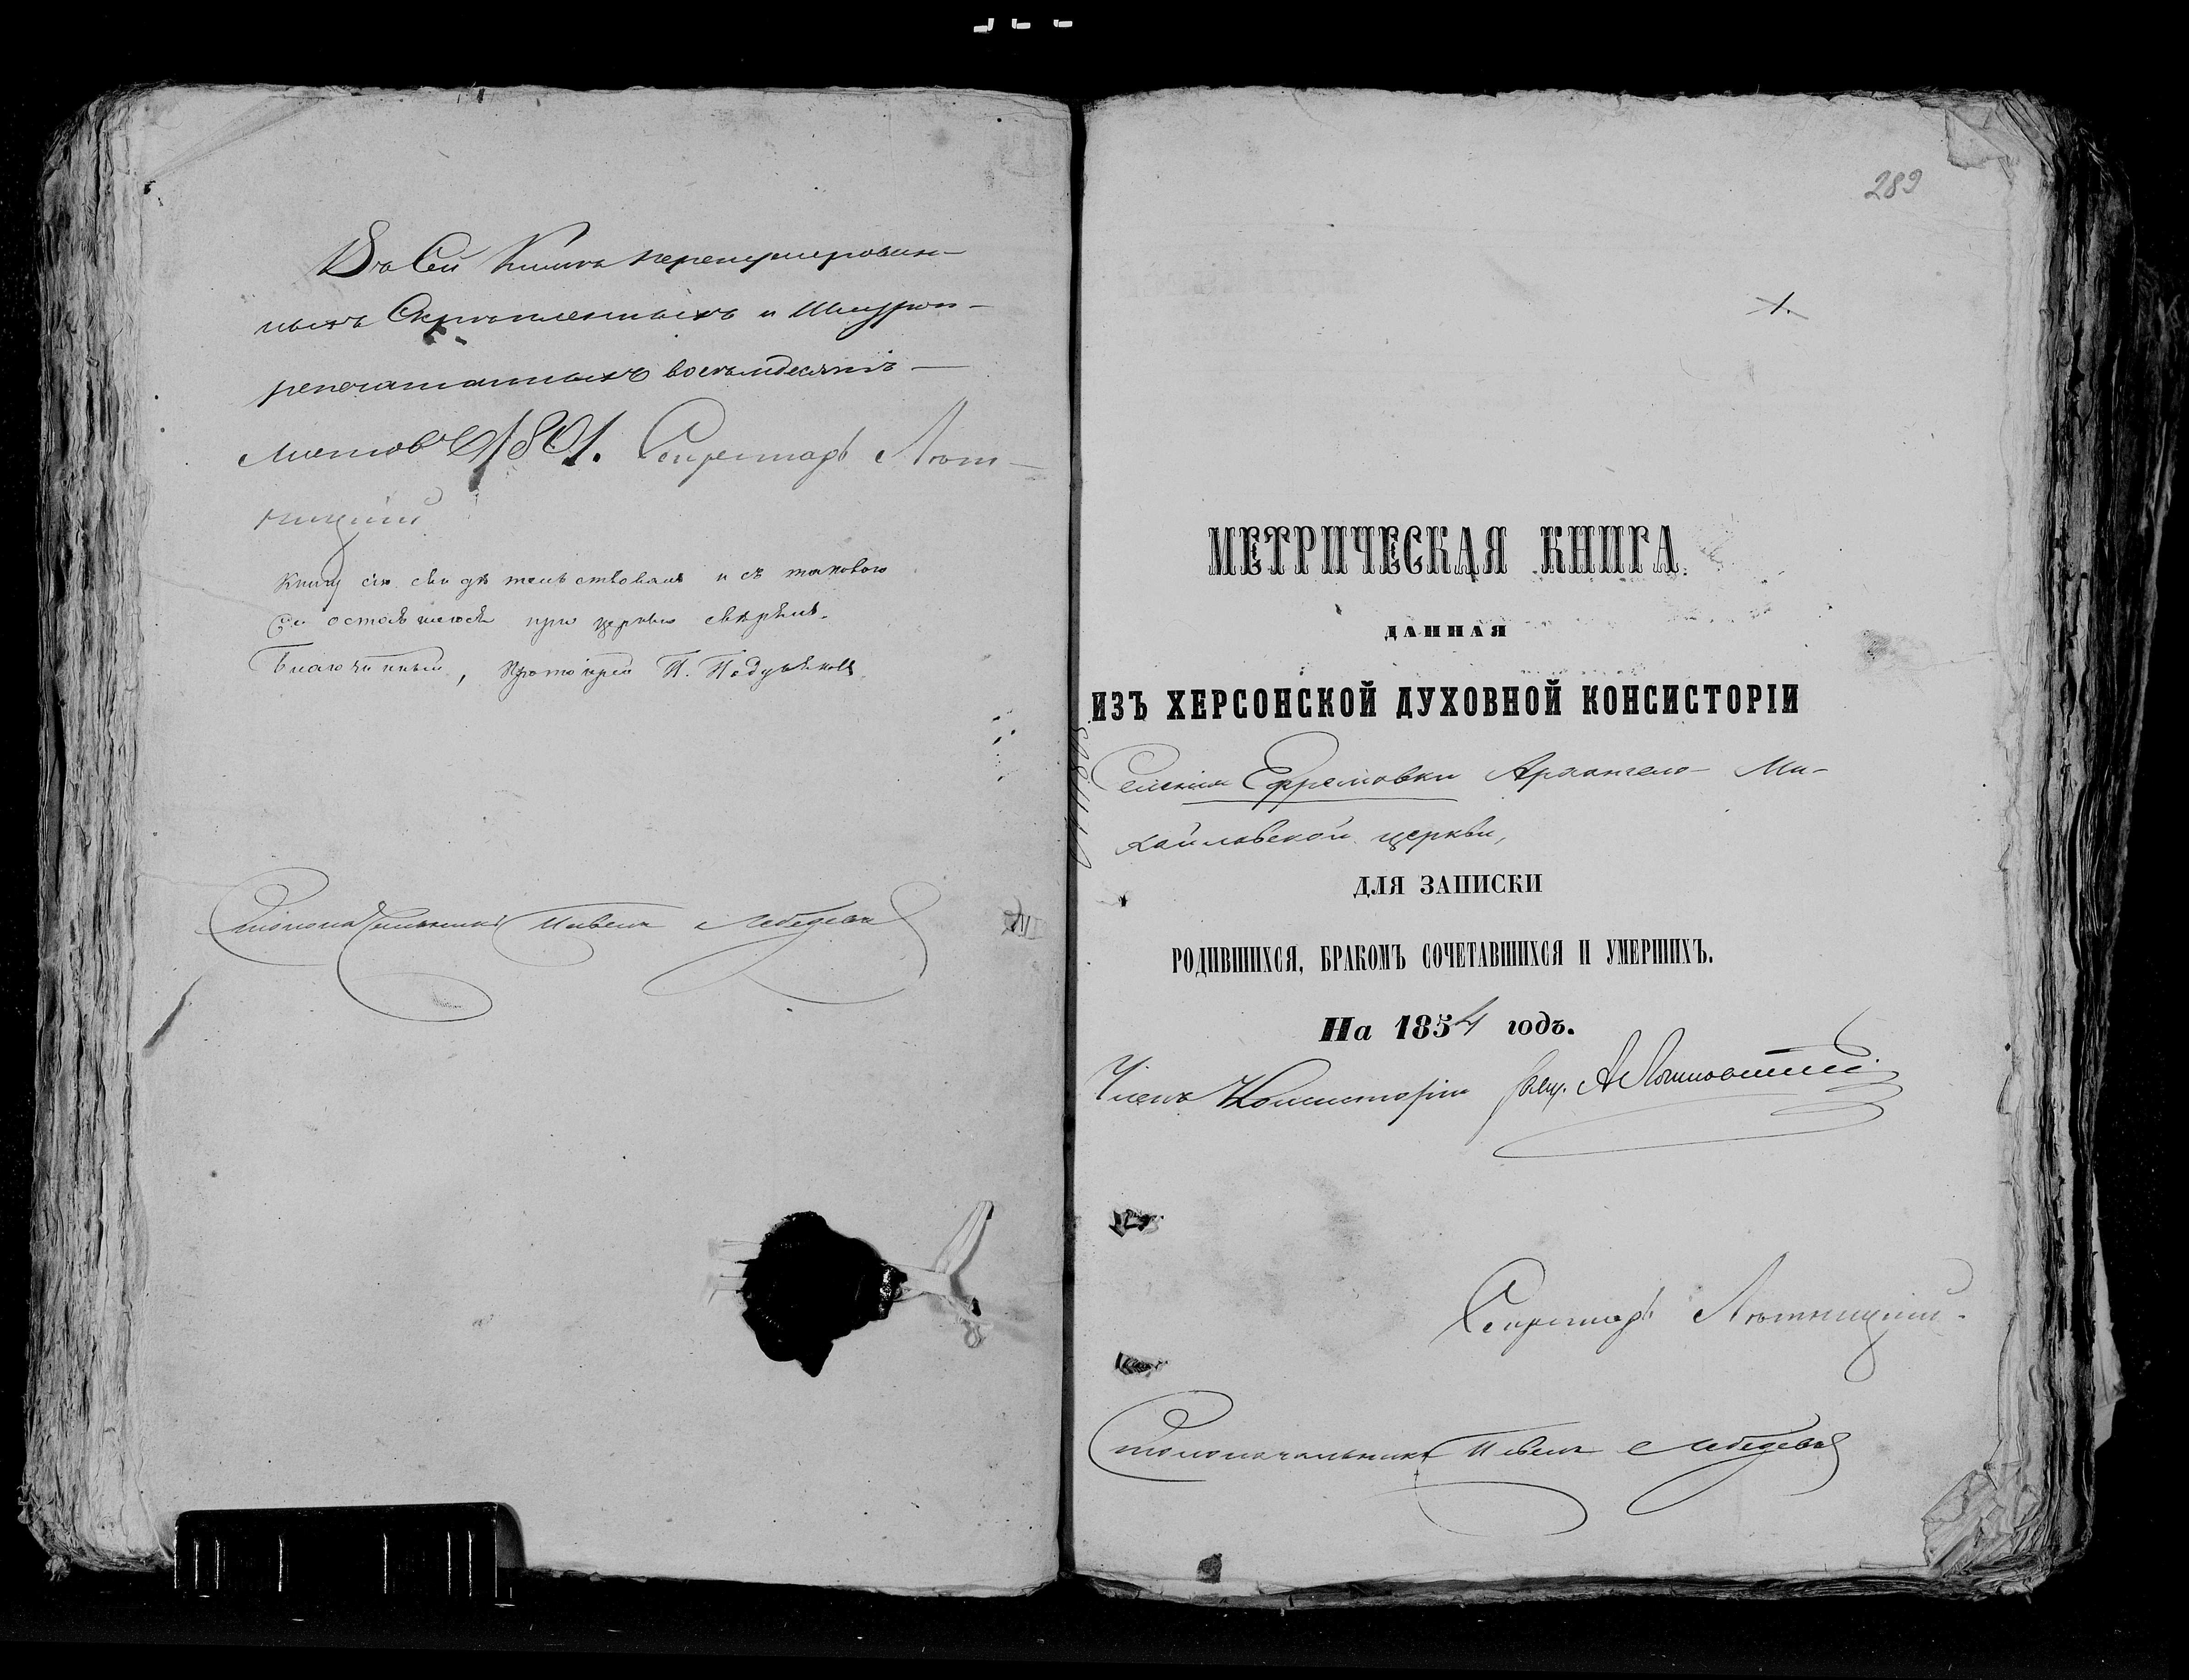 Въ Сей Книгѣ перенумерован-
ныхъ Скрѣпленныхъ и Шнуро-
репечатанныхъ восемьдесятъ
листовъ /80/. Секретарь Лѣт-
ницкій
Книгу сію свидѣтельствовалъ и съ таковою
оставшеюся при церкви свѣрялъ.
Благочинный, Протоіерей П.
Столоначальникъ Павелъ Лебедевъ
289
1.
МЕТРИЧЕСКАЯ КНИГА
ДАННАЯ
ИЗЪ ХЕРСОНСКОЙ ДУХОВНОЙ КОНСИСТОРІИ
Селенія Ефремовки Архангело-Ми-
хайловской церкви,
ДЛЯ ЗАПИСКИ
РОДИВШИХСЯ, БРАКОМЪ СОЧЕТАВШИХСЯ И УМЕРШИХЪ.
На 1854 годъ.
Членъ Консисторіи Свящ. А.
Секретарь Лѣтницкій.
Столоначальникъ Павелъ Лебедевъ